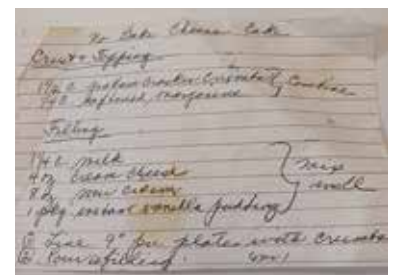 No Bake Cheese Cake
Crust & Topping
1 1/2 c. graham cracker crumbs } Combine
1/4 c. softened margarine
Filling
milk
4 oz cream cheese
8 oz sour cream
1 pkg instant vanilla pudding } mix well
① Line 9" pie plate with crumbs
② Pour filling.